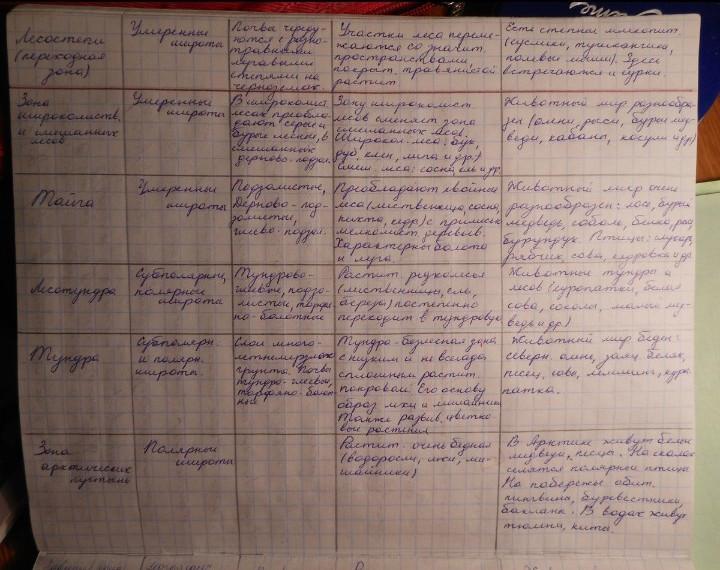 Лесостепи
(переходная
зона)
Умеренные
широты
Почвы череду-
ются с разно-
травными
луговыми
степями на
черноземах.
Участки леса переме-
жаются со значит.
пространствами,
покрыт. травянистой
растит.
Есть степные млекопит.
(суслики, тушканчики,
полевые мыши). Здесь
встречаются и сурки.
Зона
широколиств.
и смешанных
лесов
Умеренные
широты
В широколист.
лесах преобла-
дают серые и
бурые лесные, в
смешанных
дерново-подзол.
Зону широколист.
лесов сменяет зона
смешанных лесов.
Широкол. леса: бук,
дуб, клен, липа и др.)
Смеш. леса: сосна, ель и др.
Животный мир разнообра-
зен (олени, рыси, бурые мед-
веди, кабаны, косули и др)
Тайга
Умеренные
широты
Подзолистые,
Дерново-под-
золистые,
глеево-подзол.
Преобладают хвойные
леса (лиственница, сосна,
пихта, кедр) с примесью
мелколист. деревьев.
Характерны болота
и луга.
Животный мир очень
разнообразен: лось, бурый
медведь, соболь, белка,
бурундук. Птицы: глухарь,
рябчик, сова, кедровка и др
Лесотундра
Субполярные,
полярные
широты
Тундрово-
глеевые, подзо-
листые, торфя-
но-болотные
Растит. редколесья
(лиственница, ель,
береза) постепенно
переходит в тундровую
Животные тундры и
лесов (куропатки, белая
сова, соколы, малый ме-
ведь и др.)
Тундра
Субполярн.
и полярн.
широты.
Слой много-
летнемерзлого
грунта. Почвы
тундро-глеевые,
торфяно-болот
ные
Тундра - безлесная зона
с низким и не всегда
сплошным растит.
покровом. Его основу
образ. мхи и лишайники
Также развив. цветко-
вые растения
Животный мир беден:
северн. олень, заяц беляк,
песец, сова, лемминг, куро-
патка.
Зона
арктических
пустынь
Полярные
широты
Растит. очень бедная
(водоросли, мхи, ли-
шайники)
В Арктике живут белые
медведи, песцы. На скалах
селятся полярные птицы
На побережье обит.
пингвины, буревестники,
бакланы. В водах живут
тюлени, киты.